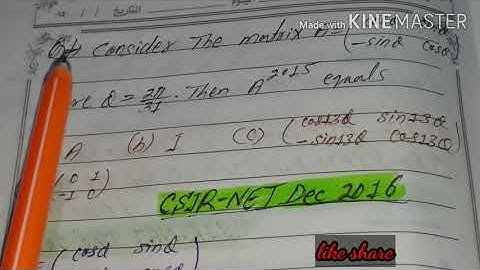 Made with KINEMASTER
Consider The matrix
-sinθ cosθ
θ = 2π/31. Then A^2015 equals
A (b) I (c) (cos13θ sin13θ
-sin13θ cos13θ)
0 1
-1 0)
CSIR-NET Dec 2016
= (cosθ sinθ
like share